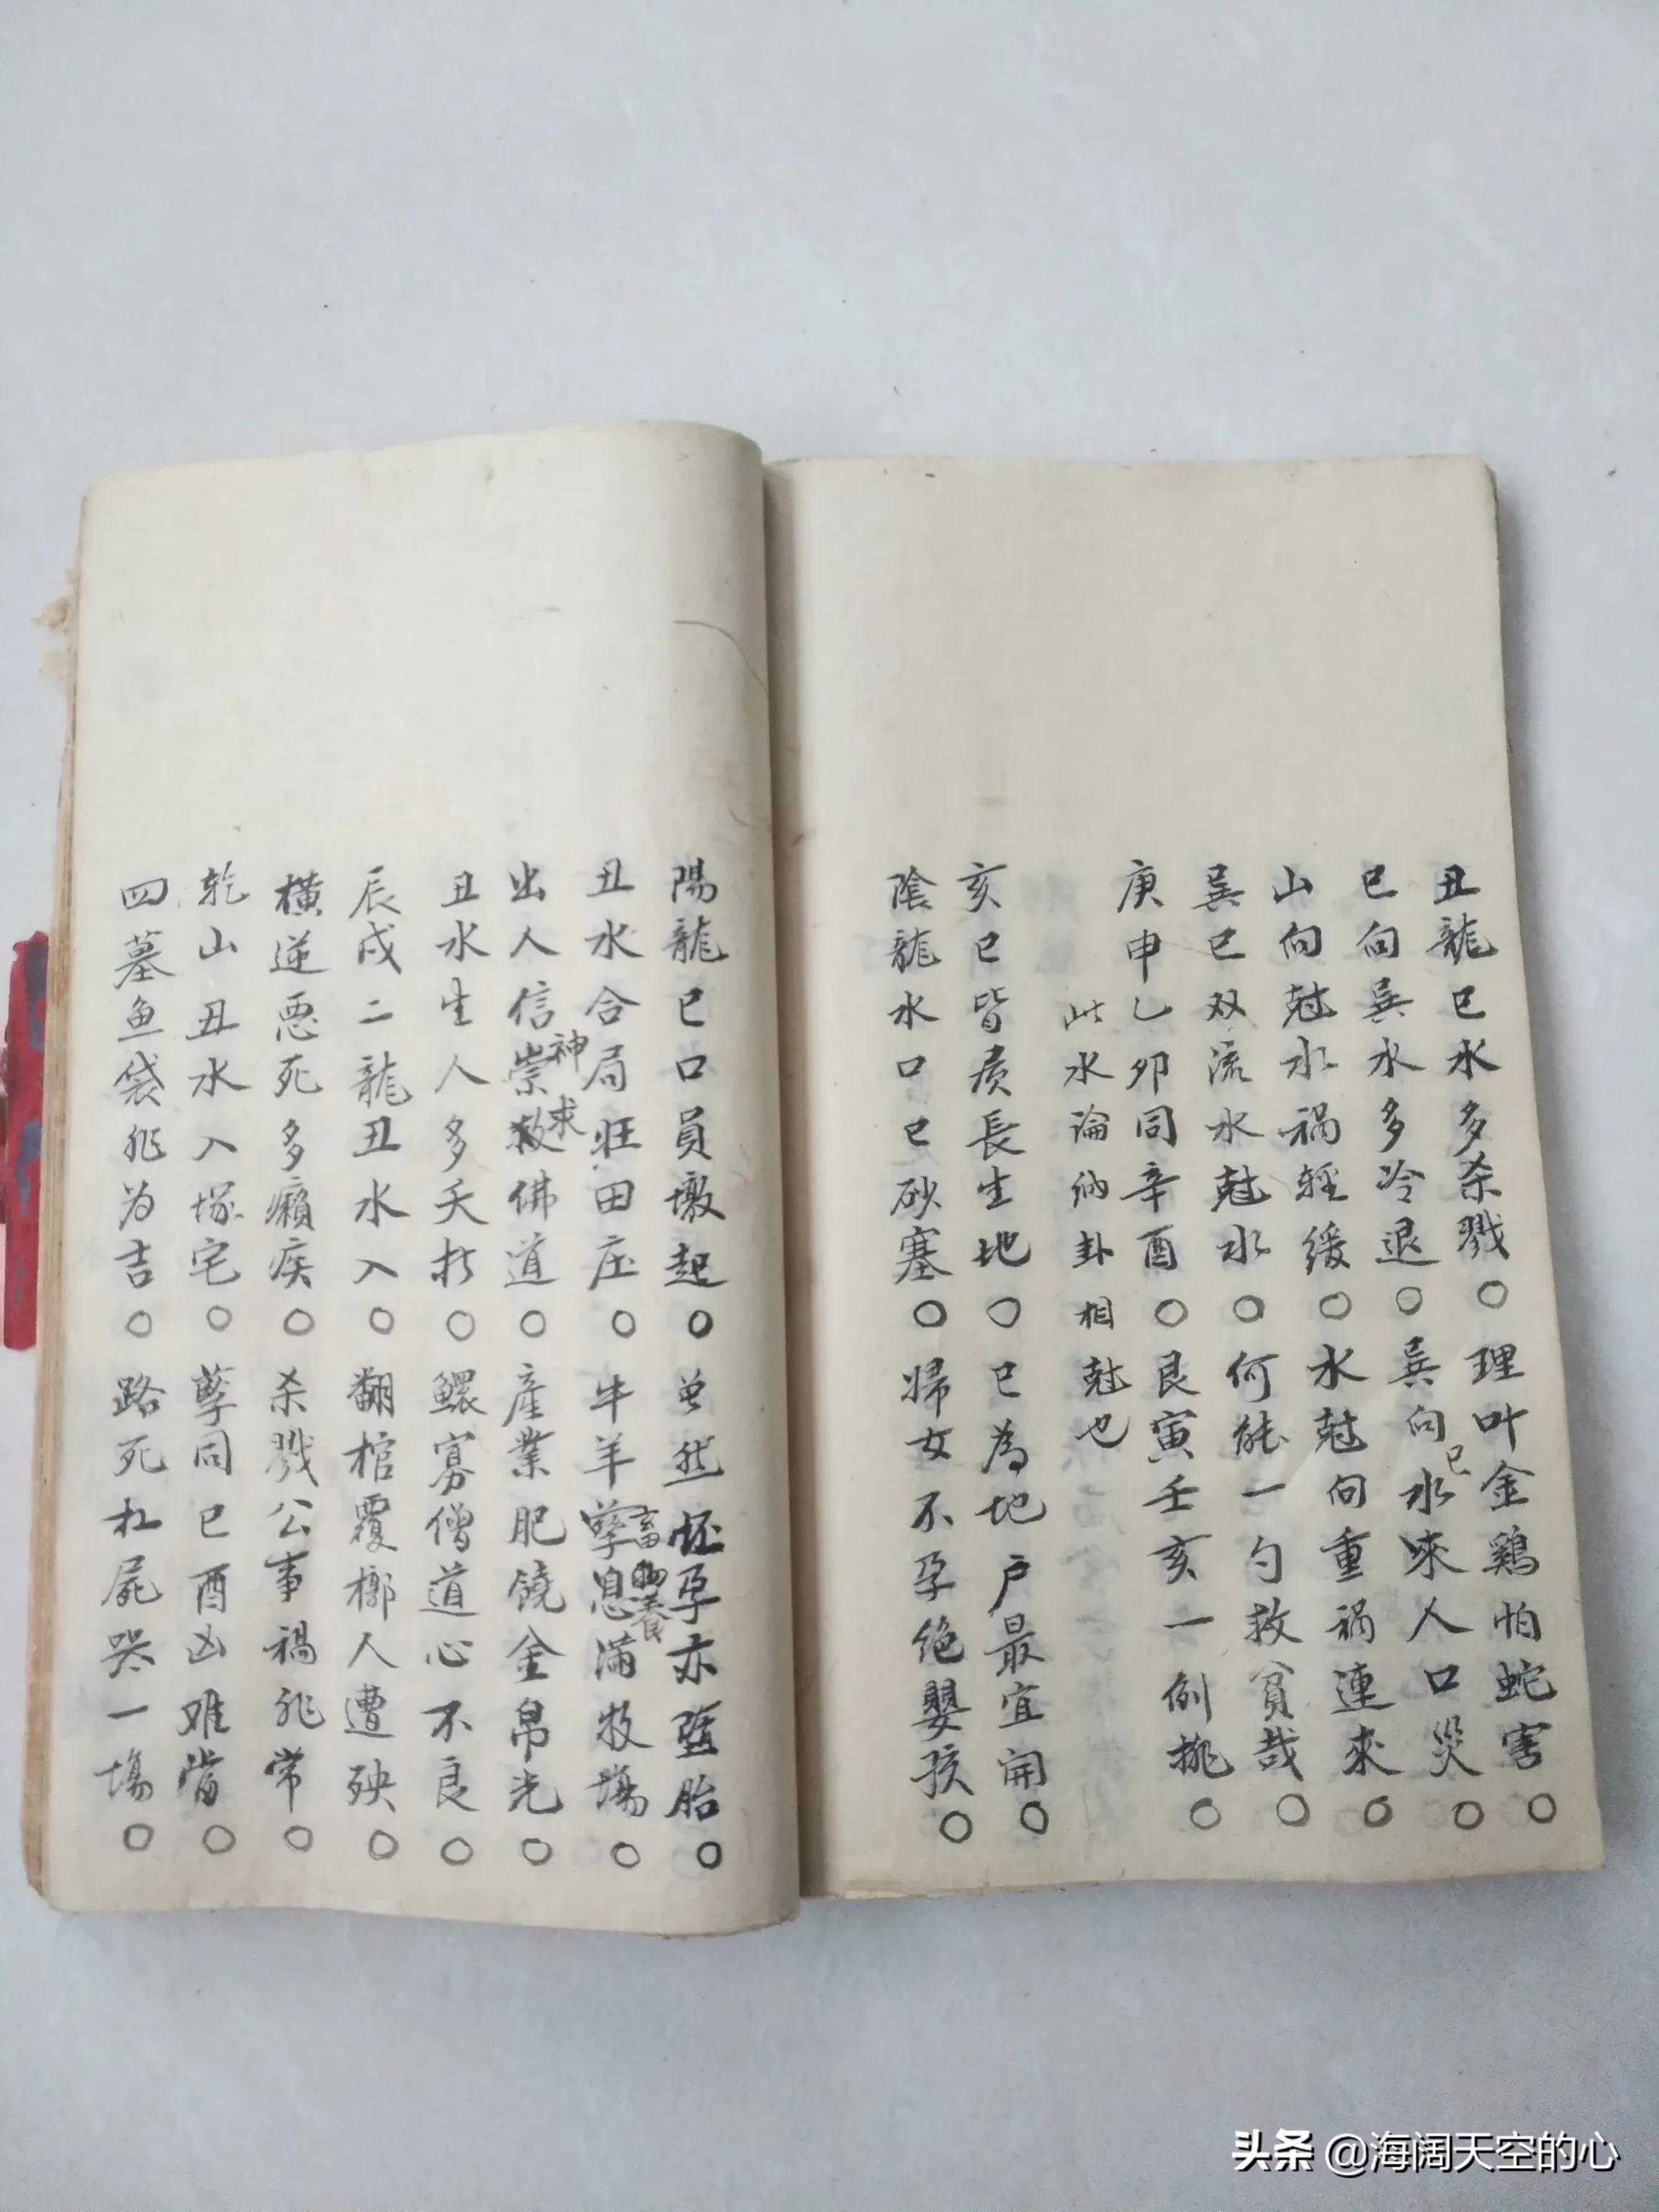 丑龍巳水多杀戮○理叶金鷄怕蛇害○
巳向巽水多冷退○巽向巳水來人口災○
山向尅水禍輕緩○水尅向重禍連來○
巽巳双流水尅水○何能一勺救貧哉
庚申乙卯同辛酉○艮寅壬亥一例挑○
此水論納卦相尅也
亥巳皆庚長生地○巳為地户最宜開○
陰龍水口巳砂塞○婦女不孕绝嬰孩○
陽龍巳口員墩起○兽然怀孕亦墮胎○
丑水合局旺田庄○牛羊孳息满牧場○
畜物養
出人信崇救佛道○產業肥饶金帛光○
神求
丑水生人多夭折○鰥寡僧道心不良○
辰戌二龍丑水入○翻棺覆槨人遭殃○
橫逆惡死多癩疾○杀戮公事禍非常○
乾山丑水入塚宅○孽同巳酉凶难當○
四墓鱼袋非为吉○路死扛屍哭一場○
头条 @海阔天空的心